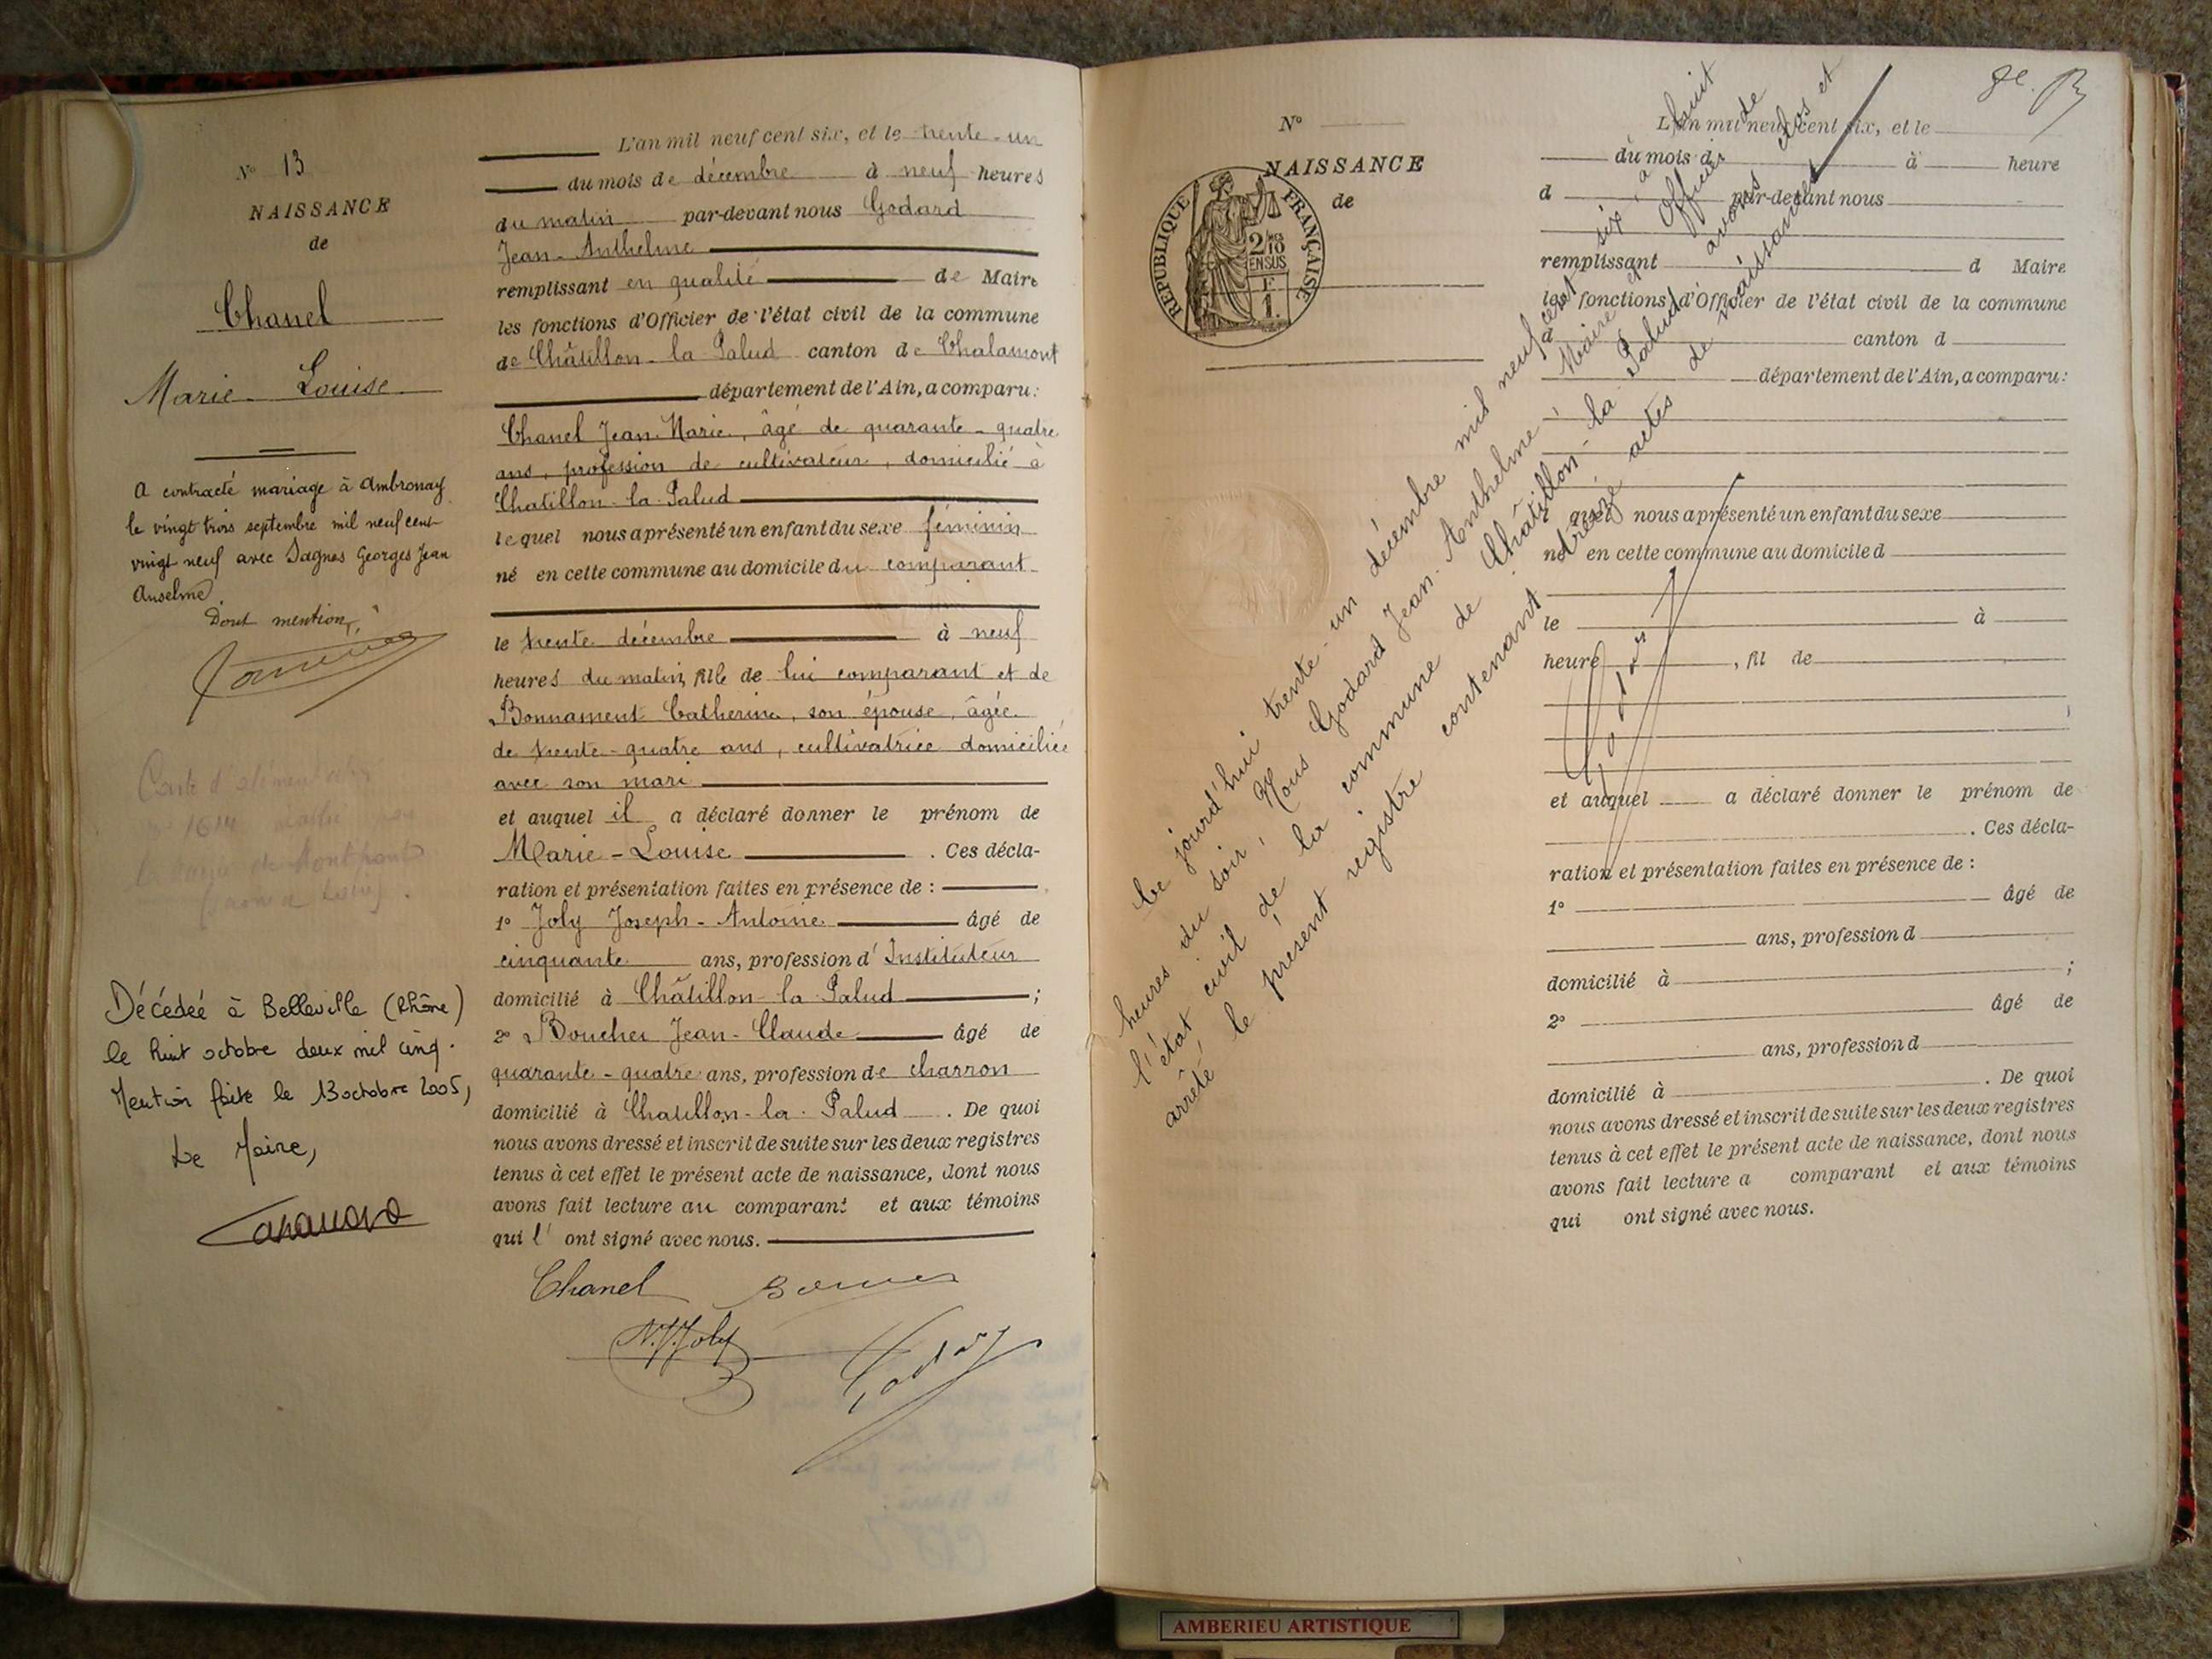 N° 13
NAISSANCE
de
Chanel
Marie-Louise
A contracté mariage à Ambronay
le vingt trois septembre mil neuf cent
vingt neuf avec Georges Jean
Anselme.
Dont mention,
Carte d'
n° 1614
Décédée à Belleville (Rhône)
le huit octobre deux mil cinq.
Mention faite le 13 octobre 2005,
Le Maire,
L'an mil neuf cent six, et le trente-un
du mois de décembre à neuf heures
du matin par-devant nous Godard
Jean-Anthelme
remplissant en qualité de Maire
les fonctions d'Officier de l'état civil de la commune
de Châtillon-la-Palud canton de Chalamont
département de l'Ain, a comparu:
Chanel Jean-Marie, âgé de quarante-quatre
ans, profession de cultivateur, domicilié à
Chatillon-la-Palud
lequel nous a présenté un enfant du sexe féminin
né en cette commune au domicile du comparant
le trente décembre à neuf
heures du matin, fille de lui comparant et de
Bonnament Catherine, son épouse, âgée
de trente-quatre ans, cultivatrice domiciliée
avec son mari
et auquel il a déclaré donner le prénom de
Marie-Louise. Ces décla-
ration et présentation faites en présence de :
1° Joly Joseph-Antoine âgé de
cinquante ans, profession d'Instituteur
domicilié à Châtillon-la-Palud ;
2° Boucher Jean-Claude âgé de
quarante-quatre ans, profession de charron
domicilié à Chatillon-la-Palud. De quoi
nous avons dressé et inscrit de suite sur les deux registres
tenus à cet effet le présent acte de naissance, dont nous
avons fait lecture au comparant et aux témoins
qui l'ont signé avec nous.
Chanel
Joly
Godard
N°
NAISSANCE
de
RÉPUBLIQUE FRANÇAISE
2/10
EN SUS
F
1.
Ce jourd'hui trente-un décembre mil neuf cent six à huit
heures du soir, Nous Godard Jean-Anthelme, Maire et Officier de
l'état civil de la commune de Châtillon-la-Palud, avons clos et
arrêté le présent registre contenant treize actes de naissance
Godard
L'an mil neuf cent six, et le
du mois d à heure
d par-devant nous
remplissant d Maire
les fonctions d'Officier de l'état civil de la commune
d canton d
département de l'Ain, a comparu:
l quel nous a présenté un enfant du sexe
né en cette commune au domicile d
le à
heure , fil de
et auquel a déclaré donner le prénom de
. Ces décla-
ration et présentation faites en présence de :
1° âgé de
ans, profession d
domicilié à ;
2° âgé de
ans, profession d
domicilié à . De quoi
nous avons dressé et inscrit de suite sur les deux registres
tenus à cet effet le présent acte de naissance, dont nous
avons fait lecture a comparant et aux témoins
qui ont signé avec nous.
AMBERIEU ARTISTIQUE